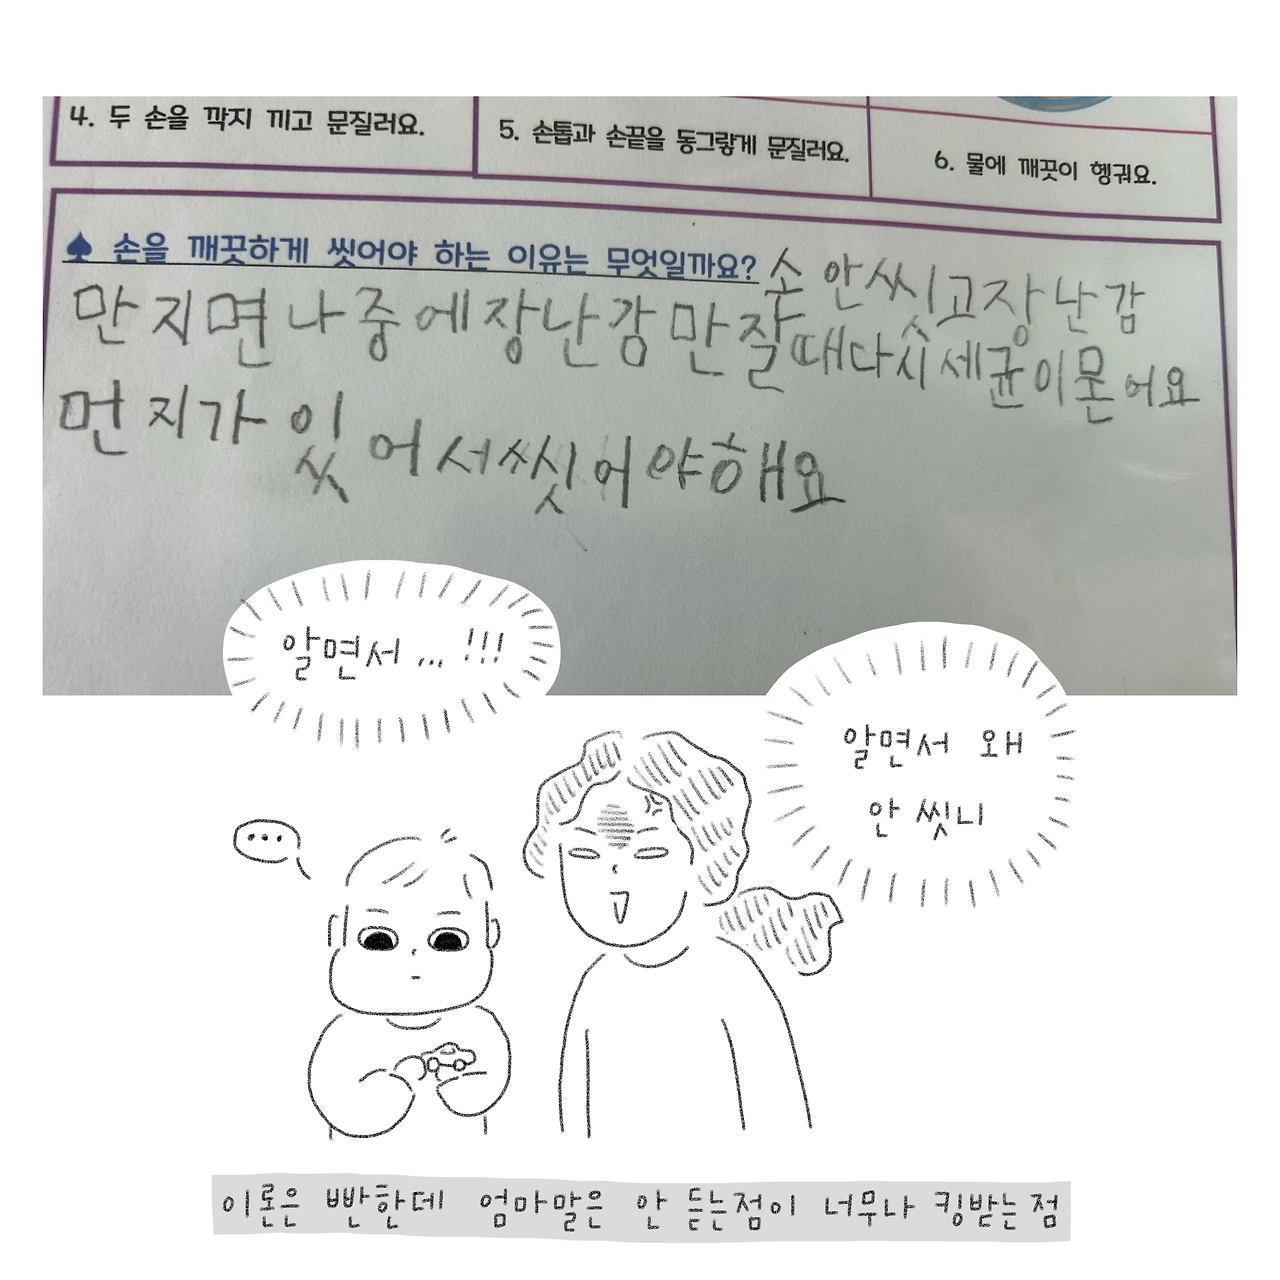 4. 두 손을 깍지 끼고 문질러요.
5. 손톱과 손끝을 동그랗게 문질러요.
6. 물에 깨끗이 헹궈요.
♠ 손을 깨끗하게 씻어야 하는 이유는 무엇일까요? 소 안 씻고장난감
만지면나중에장난감만잘때다시세균이몬어요
먼지가 있어서씻어야해요
알면서...!!!
알면서 왜
안 씻니
...
이론은 빤한데 엄마말은 안 듣는점이 너무나 킹받는 점